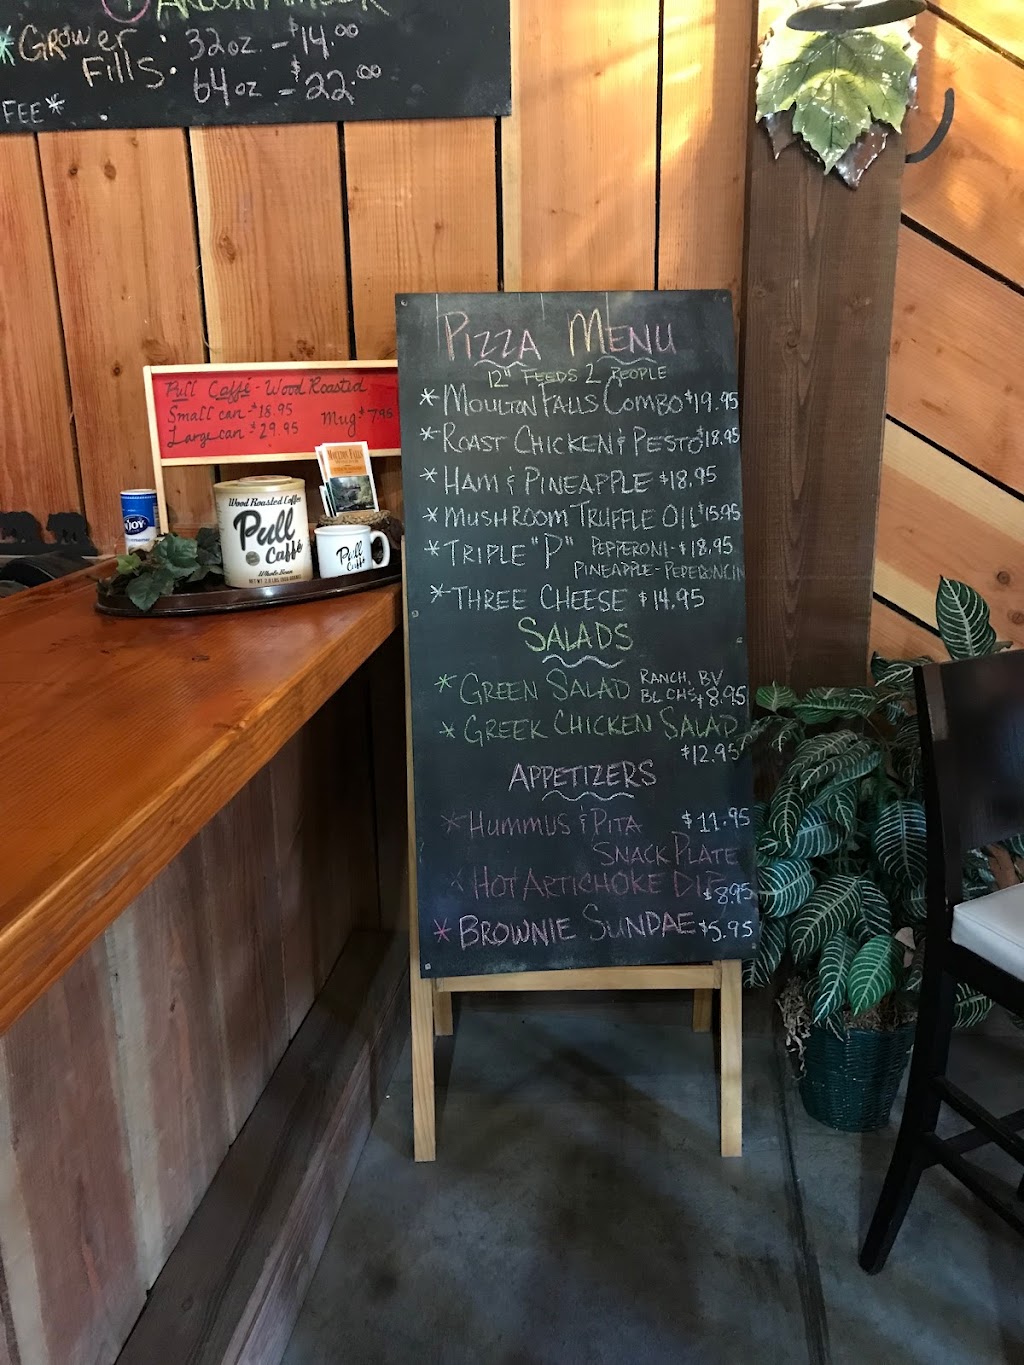 *GROWER 32oz - $14.00
FILLS. 64oz - $22.00
FEE*
Pull Caffé - Wood Roasted
Small can - $18.95
Large can - $29.95
Mug $7.95
Wood Roasted Coffee
Pull
Caffé
Whole Bean
Pull
Caffé
MOULTON FALLS
PIZZA MENU
12" FEEDS 2 PEOPLE
*MOULTON FALLS COMBO $19.95
*ROAST CHICKEN & PESTO $18.95
*HAM & PINEAPPLE $18.95
*MUSHROOM TRUFFLE OIL $15.95
*TRIPLE "P" PEPPERONI - $18.95
PINEAPPLE - PEPERONCINI
*THREE CHEESE $14.95
SALADS
*GREEN SALAD RANCH, BV
BL CHS $8.95
*GREEK CHICKEN SALAD
$12.95
APPETIZERS
*HUMMUS & PITA $11.95
SNACK PLATE
*HOT ARTICHOKE DIP $8.95
*BROWNIE SUNDAE $5.95